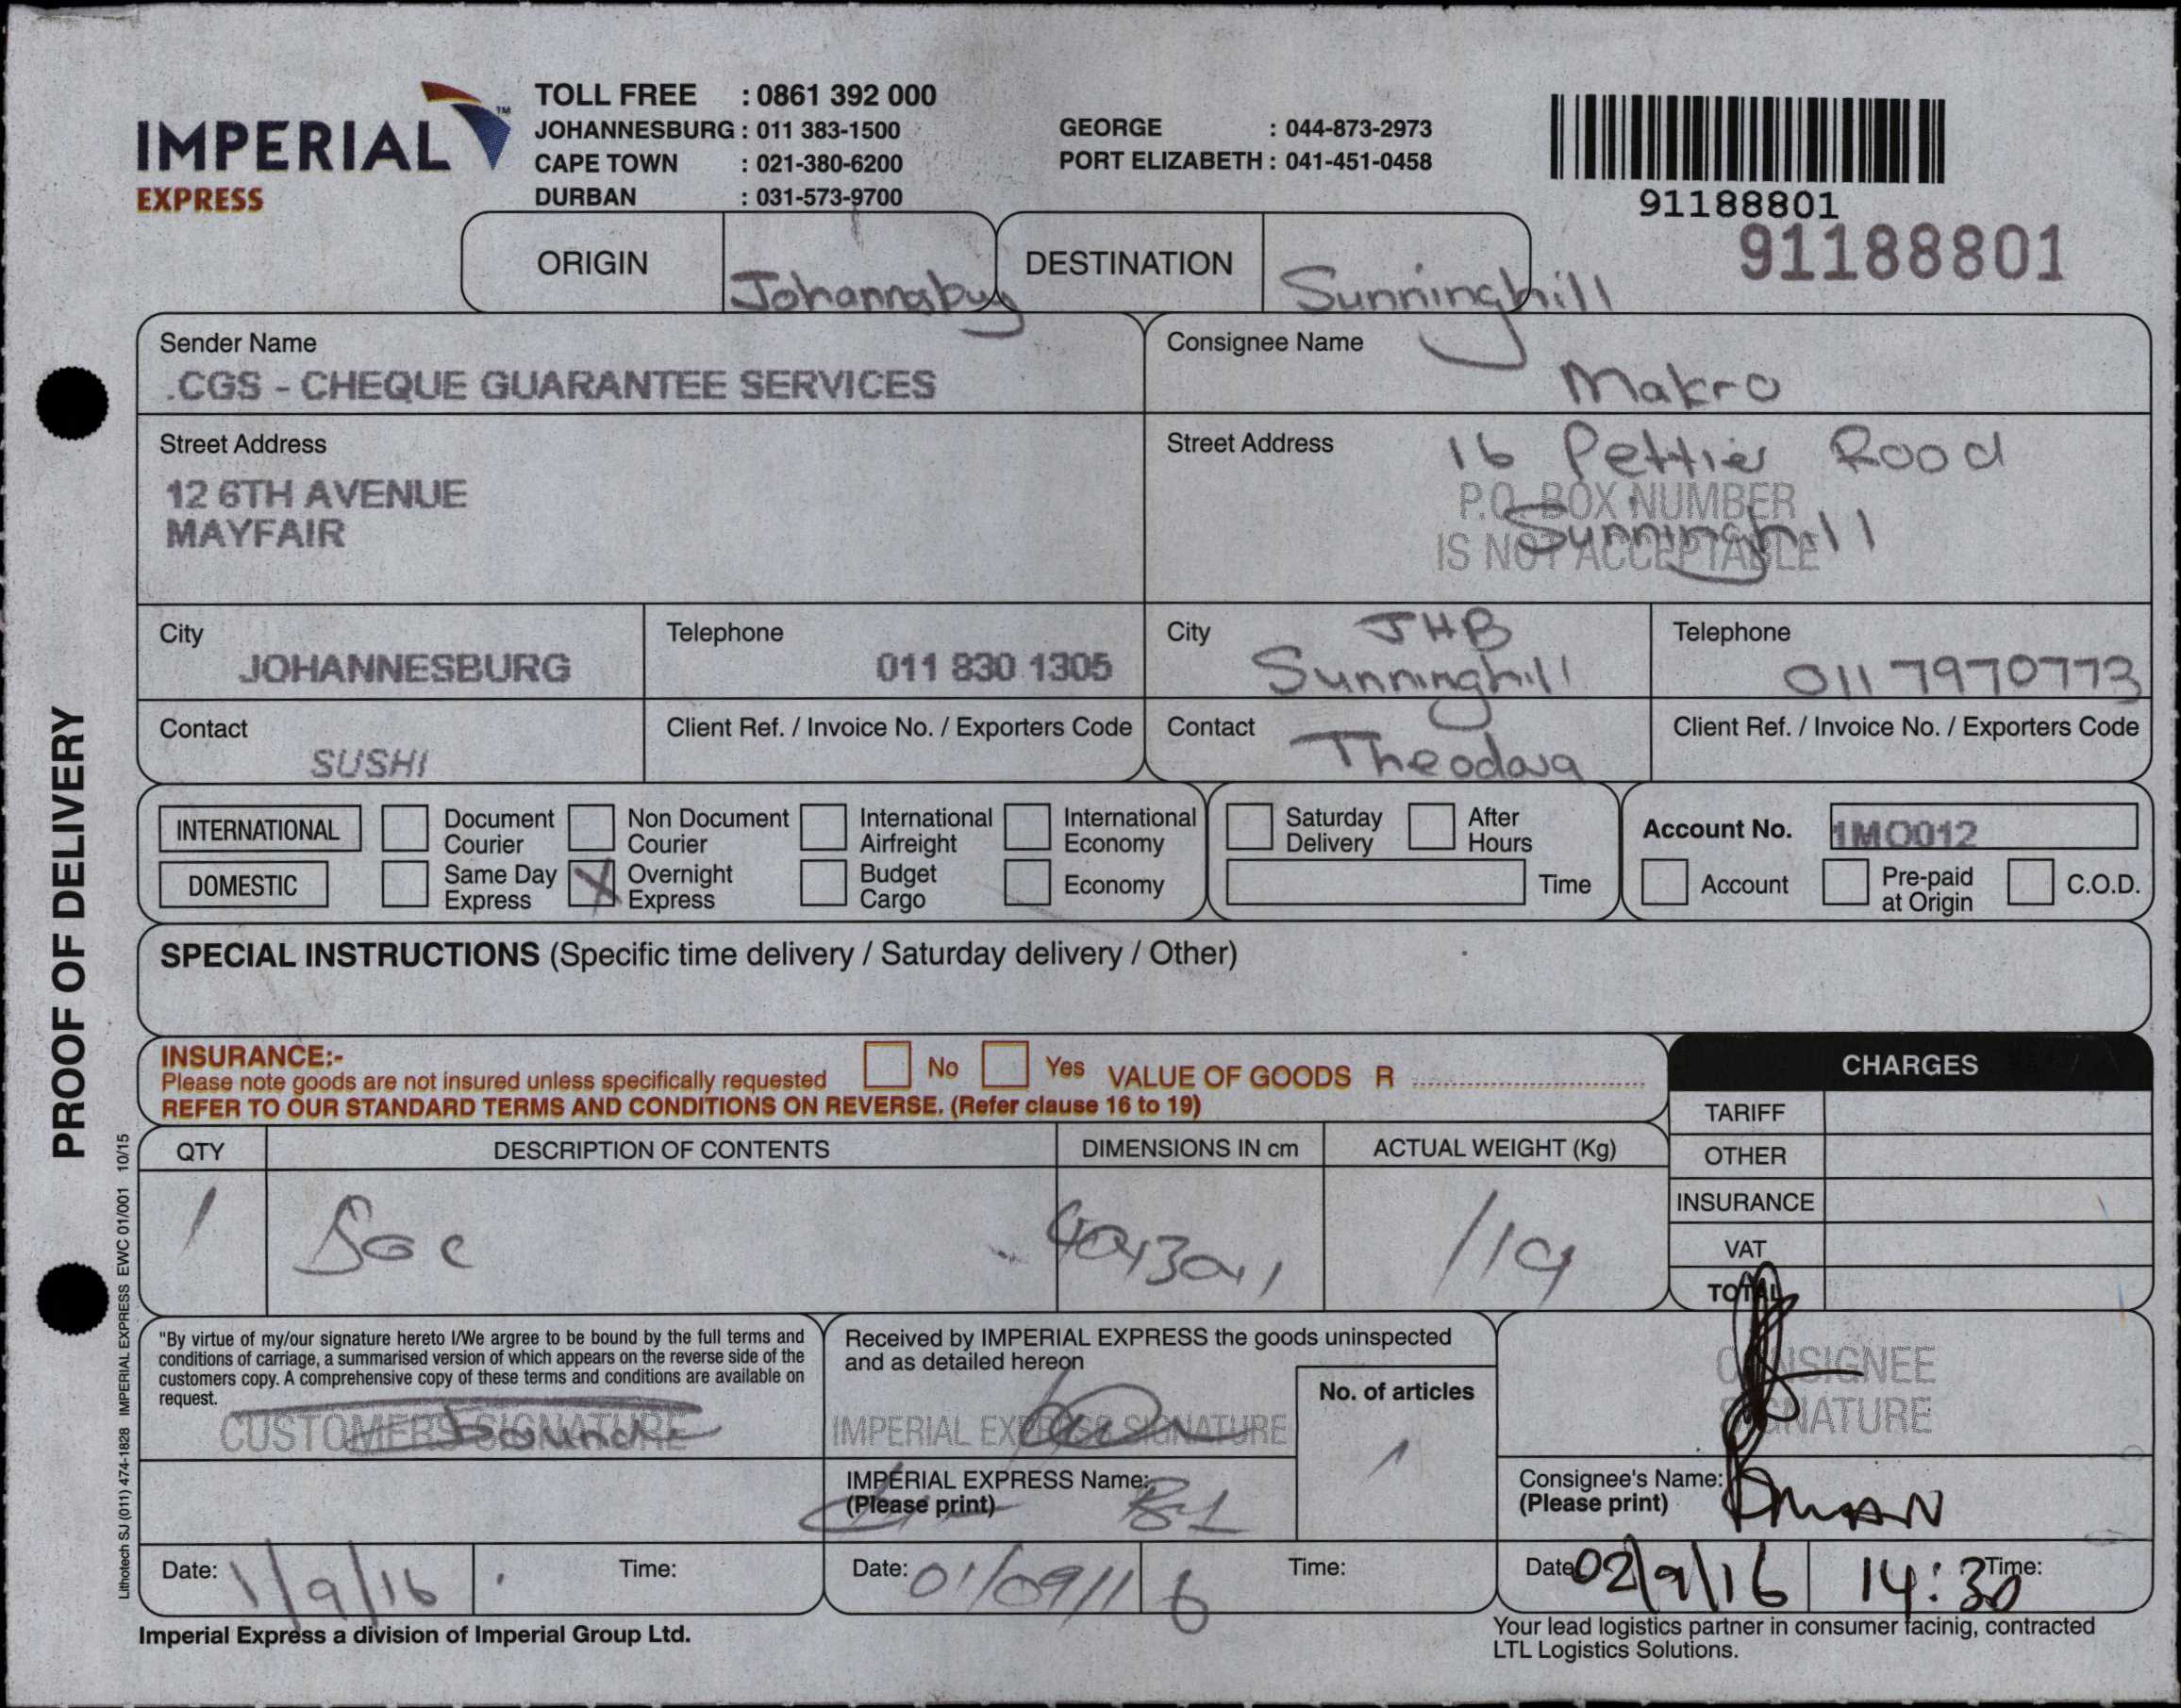 IMPERIAL™
EXPRESS
TOLL FREE : 0861 392 000
JOHANNESBURG : 011 383-1500
CAPE TOWN : 021-380-6200
DURBAN : 031-573-9700
GEORGE : 044-873-2973
PORT ELIZABETH : 041-451-0458
91188801
91188801
ORIGIN
DESTINATION Sunninghill
Sender Name
.CGS - CHEQUE GUARANTEE SERVICES
Consignee Name
Makro
Street Address
12 6TH AVENUE
MAYFAIR
Street Address 16 Road
P.O. BOX NUMBER
Sunninghill
IS NOT ACCEPTABLE
City
JOHANNESBURG
Telephone
011 830 1305
City JHB
Sunninghill
Telephone
011 7970773
Contact
SUSHI
Client Ref. / Invoice No. / Exporters Code
Contact
Client Ref. / Invoice No. / Exporters Code
INTERNATIONAL
Document Courier
Non Document Courier
International Airfreight
International Economy
DOMESTIC
Same Day Express
X Overnight Express
Budget Cargo
Economy
Saturday Delivery
After Hours
Time
Account No. 1MO012
Account
Pre-paid at Origin
C.O.D.
SPECIAL INSTRUCTIONS (Specific time delivery / Saturday delivery / Other)
INSURANCE:-
No Yes VALUE OF GOODS R
Please note goods are not insured unless specifically requested
REFER TO OUR STANDARD TERMS AND CONDITIONS ON REVERSE. (Refer clause 16 to 19)
CHARGES
TARIFF
OTHER
INSURANCE
VAT
TOTAL
QTY DESCRIPTION OF CONTENTS DIMENSIONS IN cm ACTUAL WEIGHT (Kg)
1
"By virtue of my/our signature hereto I/We argree to be bound by the full terms and
conditions of carriage, a summarised version of which appears on the reverse side of the
customers copy. A comprehensive copy of these terms and conditions are available on
request.
CUSTOMERS SIGNATURE
Date: 1/9/16 Time:
Received by IMPERIAL EXPRESS the goods uninspected
and as detailed hereon
IMPERIAL EXPRESS SIGNATURE
No. of articles
1
IMPERIAL EXPRESS Name:
(Please print)
Date: 01/09/16 Time:
CONSIGNEE
SIGNATURE
Consignee's Name:
(Please print)
Date 02/9/16 14:30 Time:
Imperial Express a division of Imperial Group Ltd.
Your lead logistics partner in consumer facinig, contracted
LTL Logistics Solutions.
PROOF OF DELIVERY
Lithotech SJ (011) 474-1828 IMPERIAL EXPRESS EWC 01/001 10/15